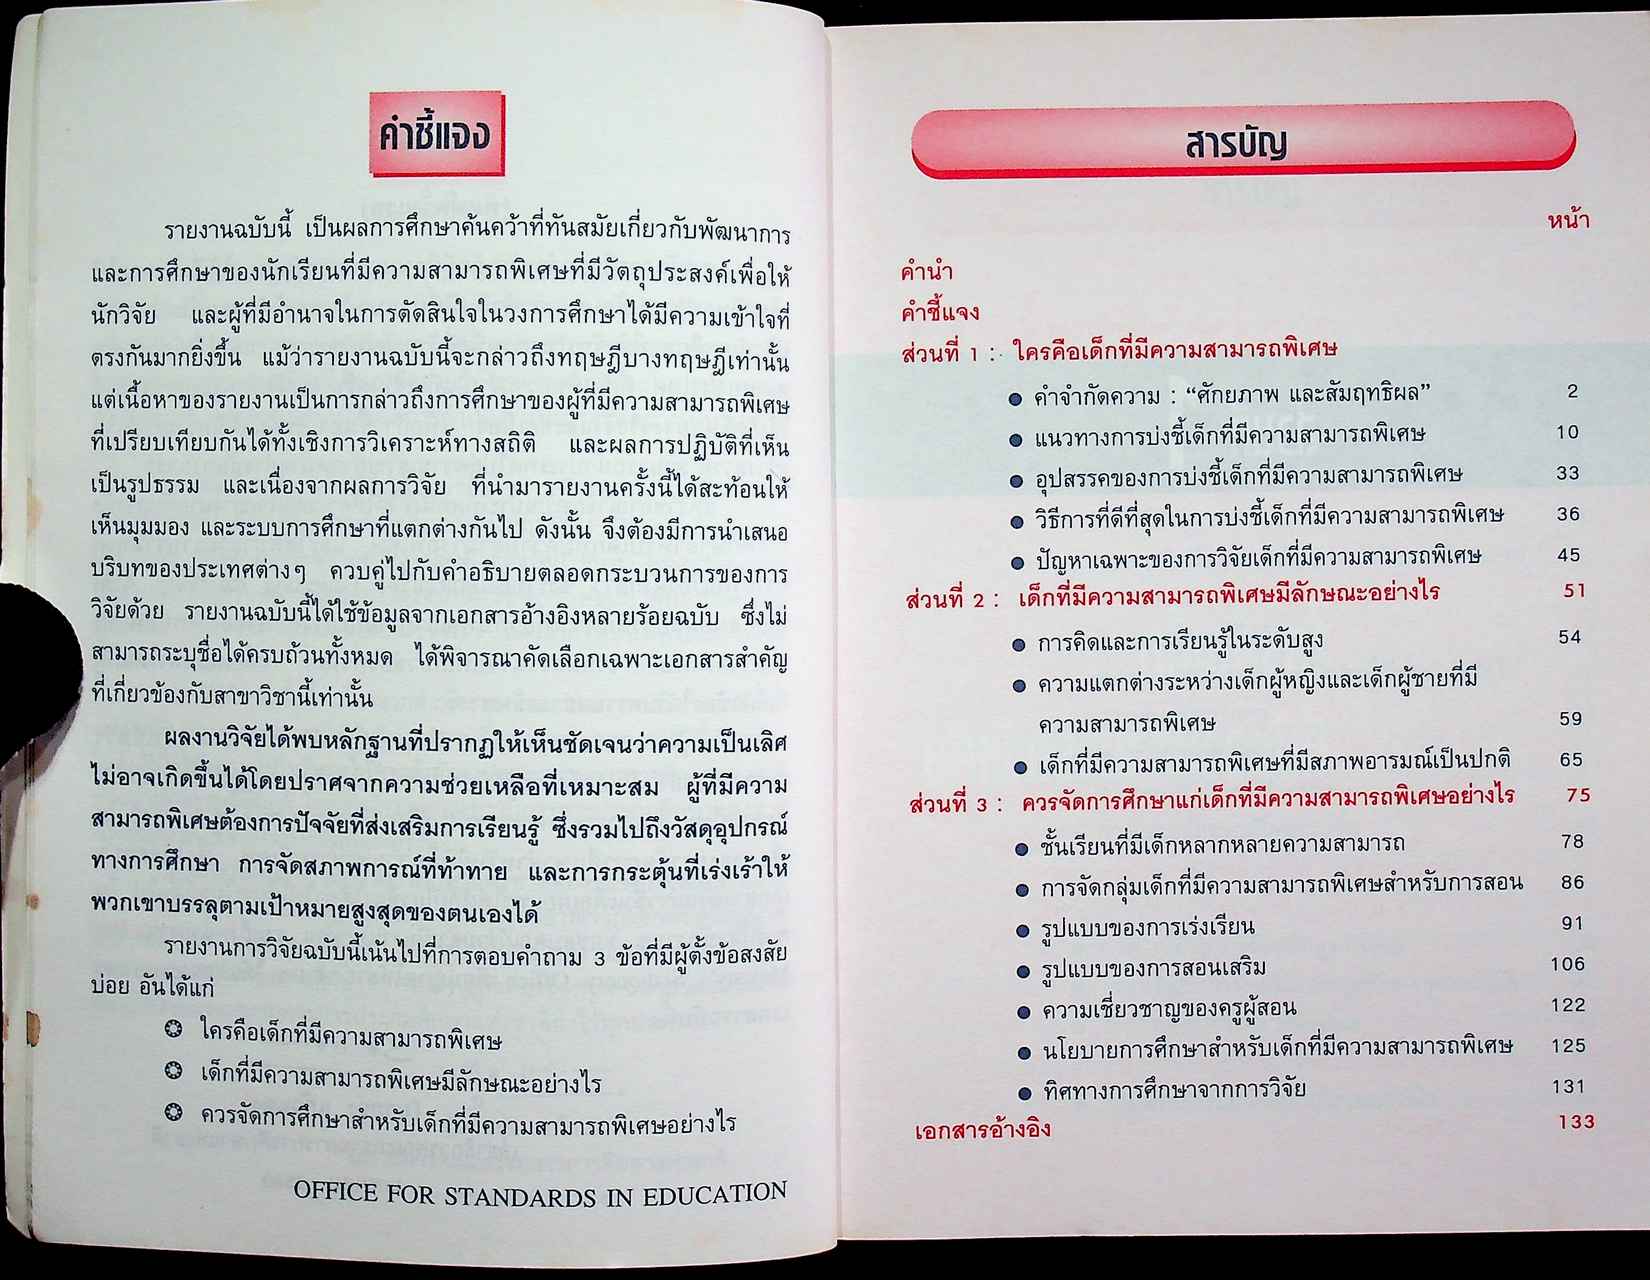 คำชี้แจง
รายงานฉบับนี้ เป็นผลการศึกษาค้นคว้าที่ทันสมัยเกี่ยวกับพัฒนาการ
และการศึกษาของนักเรียนที่มีความสามารถพิเศษที่มีวัตถุประสงค์เพื่อให้
นักวิจัย และผู้ที่มีอำนาจในการตัดสินใจในวงการศึกษาได้มีความเข้าใจที่
ตรงกันมากยิ่งขึ้น แม้ว่ารายงานฉบับนี้จะกล่าวถึงทฤษฎีบางทฤษฎีเท่านั้น
แต่เนื้อหาของรายงานเป็นการกล่าวถึงการศึกษาของผู้ที่มีความสามารถพิเศษ
ที่เปรียบเทียบกันได้ทั้งเชิงการวิเคราะห์ทางสถิติ และผลการปฏิบัติที่เห็น
เป็นรูปธรรม และเนื่องจากผลการวิจัย ที่นำมารายงานครั้งนี้ได้สะท้อนให้
เห็นมุมมอง และระบบการศึกษาที่แตกต่างกันไป ดังนั้น จึงต้องมีการนำเสนอ
บริบทของประเทศต่างๆ ควบคู่ไปกับคำอธิบายตลอดกระบวนการของการ
วิจัยด้วย รายงานฉบับนี้ได้ใช้ข้อมูลจากเอกสารอ้างอิงหลายร้อยฉบับ ซึ่งไม่
สามารถระบุชื่อได้ครบถ้วนทั้งหมด ได้พิจารณาคัดเลือกเฉพาะเอกสารสำคัญ
ที่เกี่ยวข้องกับสาขาวิชานี้เท่านั้น
ผลงานวิจัยได้พบหลักฐานที่ปรากฏให้เห็นชัดเจนว่าความเป็นเลิศ
ไม่อาจเกิดขึ้นได้โดยปราศจากความช่วยเหลือที่เหมาะสม ผู้ที่มีความ
สามารถพิเศษต้องการปัจจัยที่ส่งเสริมการเรียนรู้ ซึ่งรวมไปถึงวัสดุอุปกรณ์
ทางการศึกษา การจัดสภาพการณ์ที่ท้าทาย และการกระตุ้นที่เร่งเร้าให้
พวกเขาบรรลุตามเป้าหมายสูงสุดของตนเองได้
รายงานการวิจัยฉบับนี้เน้นไปที่การตอบคำถาม 3 ข้อที่มีผู้ตั้งข้อสงสัย
บ่อย อันได้แก่
ใครคือเด็กที่มีความสามารถพิเศษ
เด็กที่มีความสามารถพิเศษมีลักษณะอย่างไร
ควรจัดการศึกษาสำหรับเด็กที่มีความสามารถพิเศษอย่างไร
OFFICE FOR STANDARDS IN EDUCATION
สารบัญ
หน้า
คำนำ
คำชี้แจง
ส่วนที่ 1 : ใครคือเด็กที่มีความสามารถพิเศษ
● คำจำกัดความ : “ศักยภาพ และสัมฤทธิผล” 2
● แนวทางการบ่งชี้เด็กที่มีความสามารถพิเศษ 10
● อุปสรรคของการบ่งชี้เด็กที่มีความสามารถพิเศษ 33
● วิธีการที่ดีที่สุดในการบ่งชี้เด็กที่มีความสามารถพิเศษ 36
● ปัญหาเฉพาะของการวิจัยเด็กที่มีความสามารถพิเศษ 45
ส่วนที่ 2 : เด็กที่มีความสามารถพิเศษมีลักษณะอย่างไร 51
● การคิดและการเรียนรู้ในระดับสูง 54
● ความแตกต่างระหว่างเด็กผู้หญิงและเด็กผู้ชายที่มี
ความสามารถพิเศษ 59
● เด็กที่มีความสามารถพิเศษที่มีสภาพอารมณ์เป็นปกติ 65
ส่วนที่ 3 : ควรจัดการศึกษาแก่เด็กที่มีความสามารถพิเศษอย่างไร 75
● ชั้นเรียนที่มีเด็กหลากหลายความสามารถ 78
● การจัดกลุ่มเด็กที่มีความสามารถพิเศษสำหรับการสอน 86
● รูปแบบของการเร่งเรียน 91
● รูปแบบของการสอนเสริม 106
● ความเชี่ยวชาญของครูผู้สอน 122
● นโยบายการศึกษาสำหรับเด็กที่มีความสามารถพิเศษ 125
● ทิศทางการศึกษาจากการวิจัย 131
เอกสารอ้างอิง 133